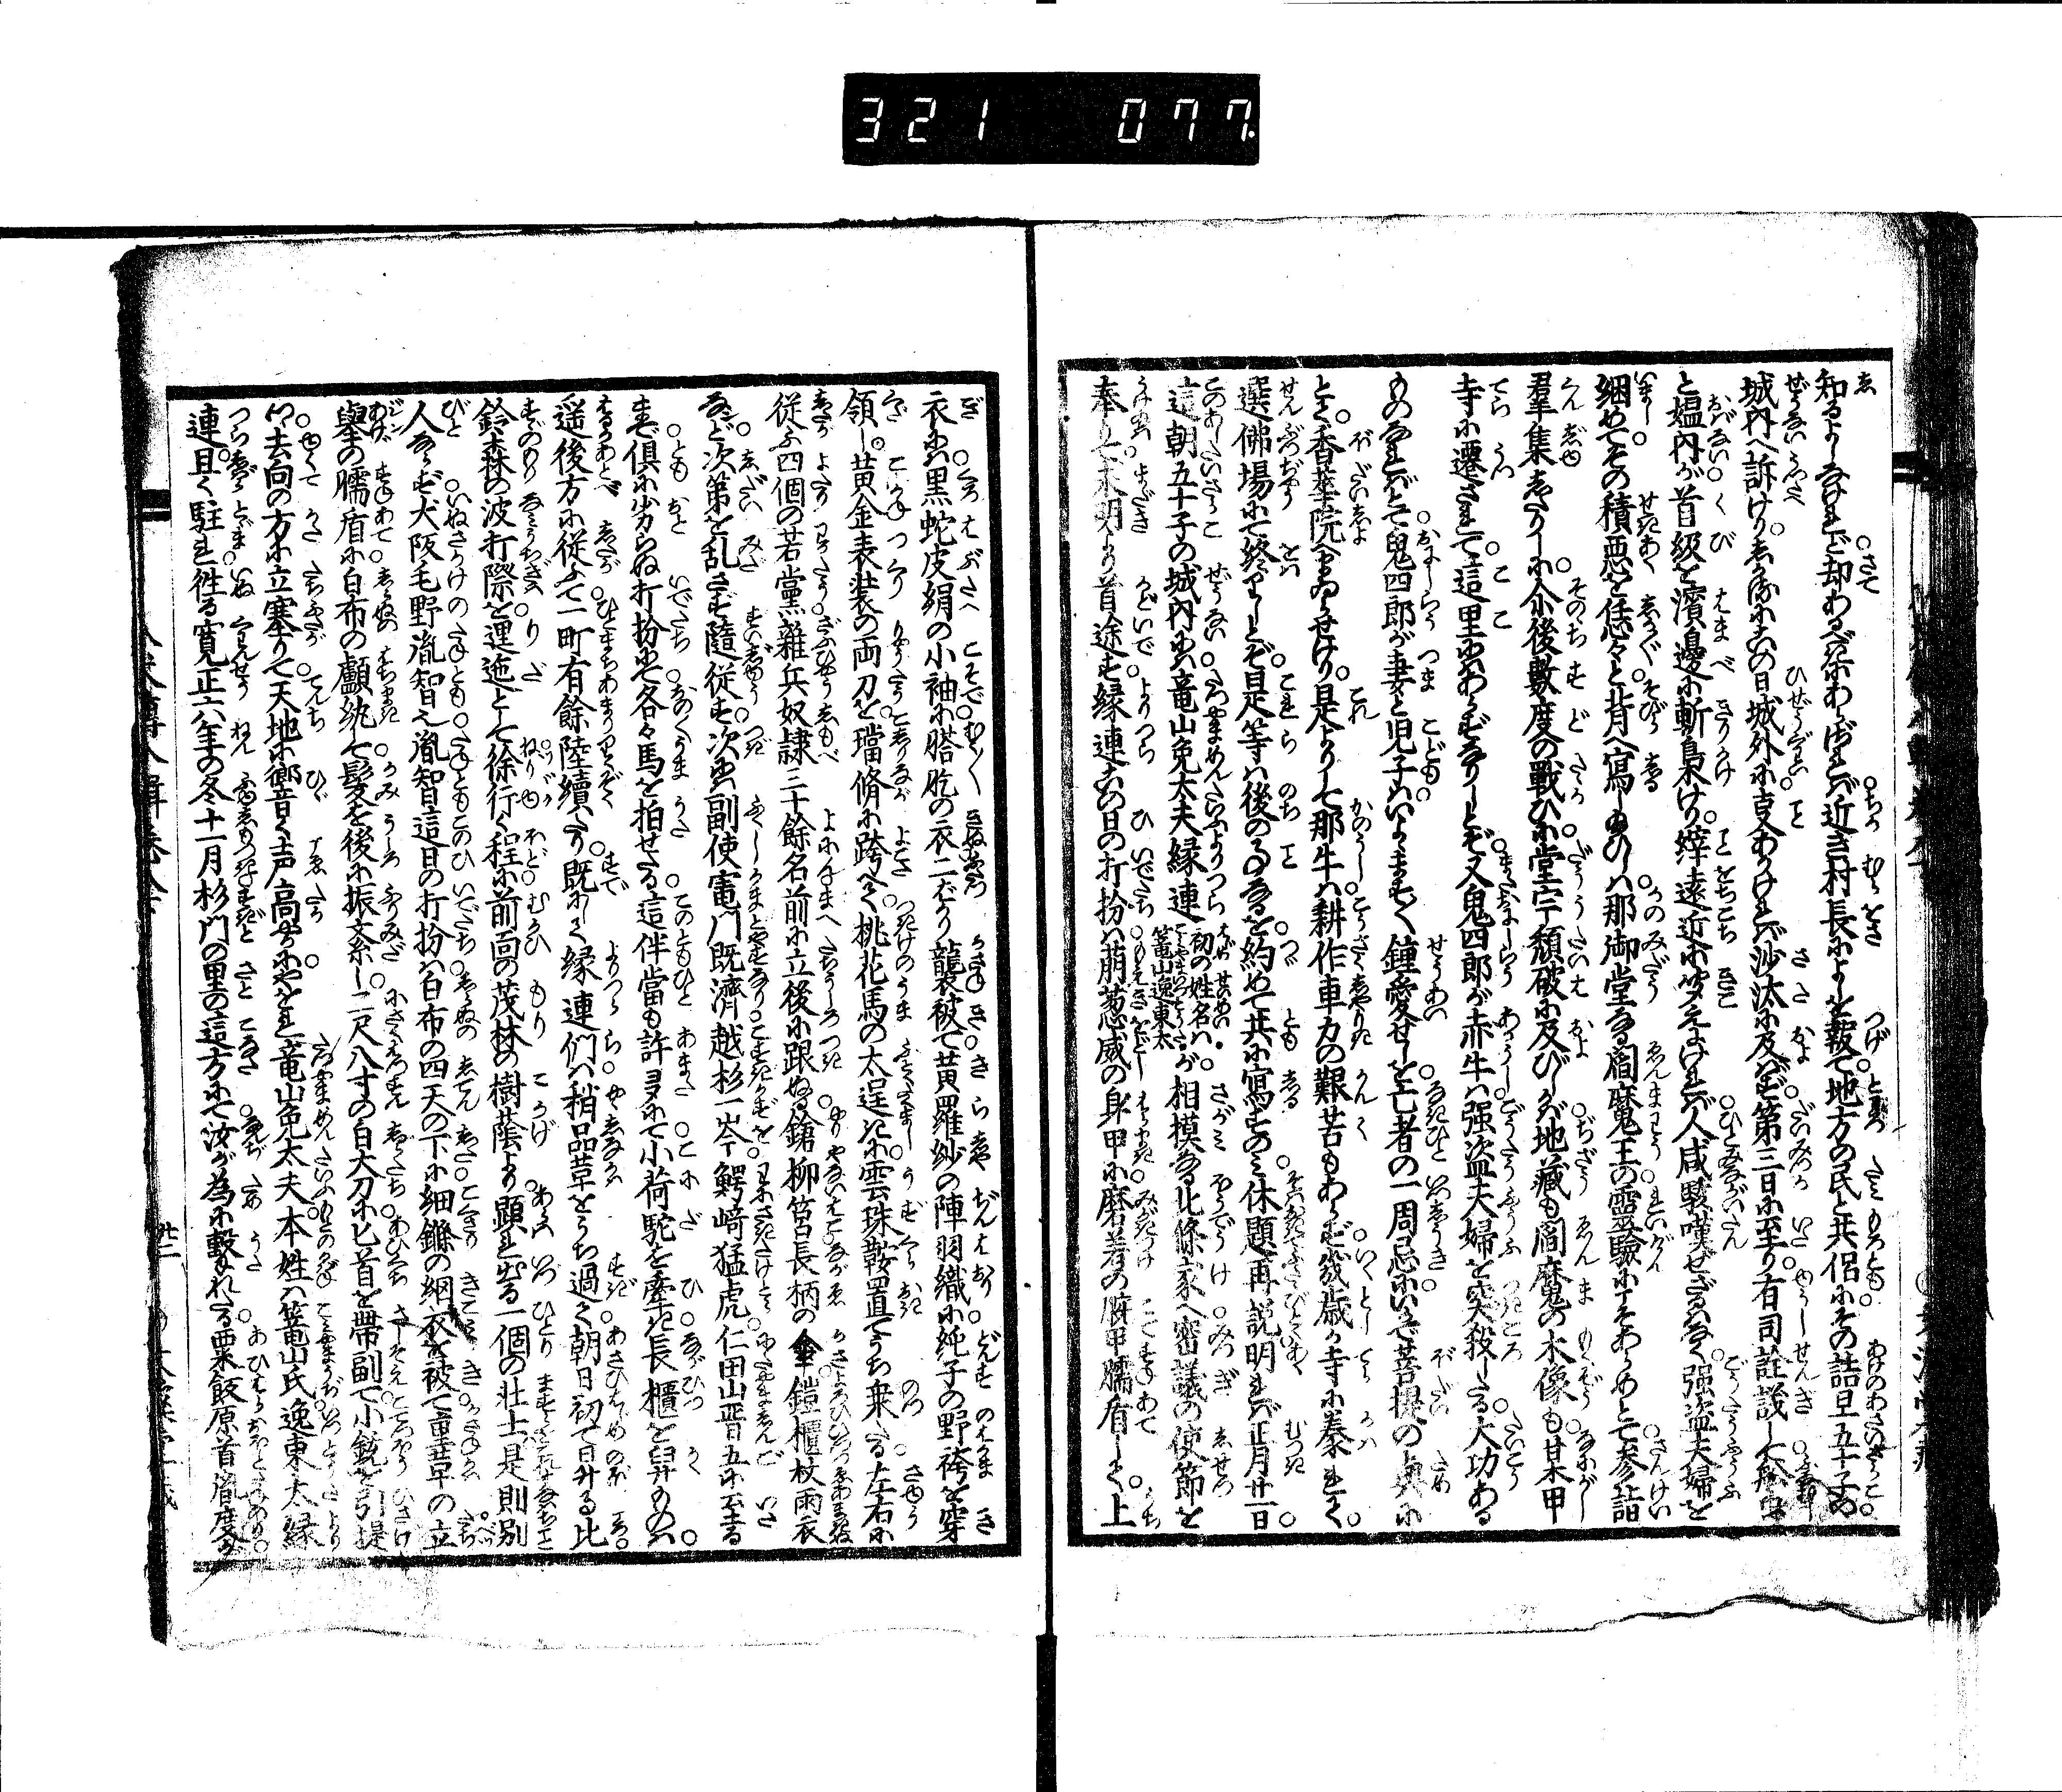 321 077
知るよしなければ却あるべきにあらざれば近き村長によしを報て地方の民と共侶にその詰旦五十子の
城内へ訴けり。しかるにこの日城外に吏ありければ沙汰に及ばず第三日に至り有司詮議して
と媼内が首級を濱邊に斬梟けり。縡遠近に聞えければ人咸駭嘆せざるはなく。强盗夫婦を
綑めてその積惡を恁々と背へ寫しゐひしは那御堂なる閻魔王の靈驗にこそあらめとて参詣
羣集したりしに尒後數度の戰ひに堂宇頽破に及びしかば地藏も閻魔の木像も某甲
寺に遷されて這里にはあらずなりしとぞ。又鬼四郎が赤牛は强盗夫婦を突殺したる大功ある
ものなればとて鬼四郎が妻と児子はいよゝますく鍾愛せしを亡者の一周忌にいたりて菩提の與に
とて香華院へまゐらせけり。是よりして那牛は耕作車力の艱苦もあらず幾歳か寺に養れて
選佛場にて終りしとぞ。是等は後の事なるを約めて共に寫すのみ休題再説明れば正月廿一日
這朝五十子の城内には竜山免太夫縁連初の姓名は。篭山逸東太が相模なる北條家へ密議の使節を
奉りて未明より首途す縁連這日の打扮は萠葱威の身甲に磨着の腕甲臑盾して。上
衣には黒蛇皮絹の小袖に胳肐の衣二ばかり襲被て黄羅紗の陣羽織に純子の野袴を穿
領し。黄金表装の両刀を璫脩に跨へて。桃花馬の太逞しきに雲珠鞍置てうち乗たる左右に
従ふ四個の若黨雜兵奴隷三十餘名前に立後に跟ぬる鎗柳筥長柄の傘鎧櫃杖雨衣
など次第を乱さず隨従す。次は副使竃門既濟越杉一岑鰐﨑猛虎仁田山晋五に至るま
まで倶に劣らぬ打扮して各々馬を拍せたる這伴當も許多にて小荷駄を牽き長櫃を舁ものは
遥後方に従ふて一町有餘陸續たり。既にして縁連们は稍品革をうち過て朝日初て升る比
鈴森の波打際を邐迤として徐行く程に前面の茂林の樹蔭より顕れ出る一個の壮士是則別
人ならず犬阪毛野胤智也胤智這日の打扮は白布の四天の下に細鏁の綑衣を被て
舉の臑盾に白布の顱紈して髪を後に振紊し二尺八寸の白大刀に匕首を帯副て小銃を引提
つゝ去向の方に立塞りて天地に響く声高やかにやをれ竜山免太夫本姓は篭山氏逸東太縁
連且く駐れ徃る寛正六年の冬十一月杉門の里の這方にて汝が為に撃れたる粟飯原首胤度が